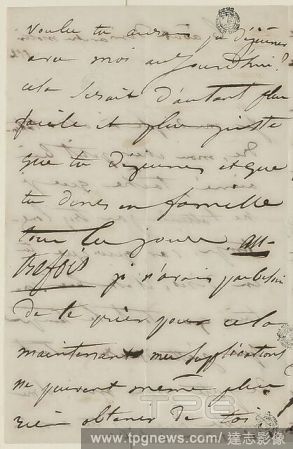 voulu tu venir déjeuner
avec moi aujourd'hui?
cela serait d'autant plus
facile et plus juste
que tu déjeunes et que
tu dînes en famille
tous les jours. au-
trefois je n'avais pas besoin
de te prier pour cela
maintenant mes supplications
ne peuvent même plus
rien obtenir de toi
TPG
www.tpgnews.com/ 達志影像